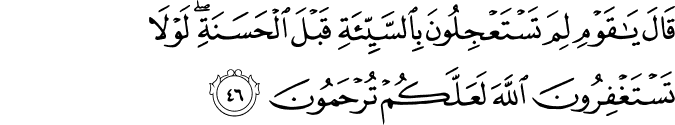 قَالَ يَٰقَوۡمِ لِمَ تَسۡتَعۡجِلُونَ بِٱلسَّيِّئَةِ قَبۡلَ ٱلۡحَسَنَةِۖ لَوۡلَا
تَسۡتَغۡفِرُونَ ٱللَّهَ لَعَلَّكُمۡ تُرۡحَمُونَ ٤٦